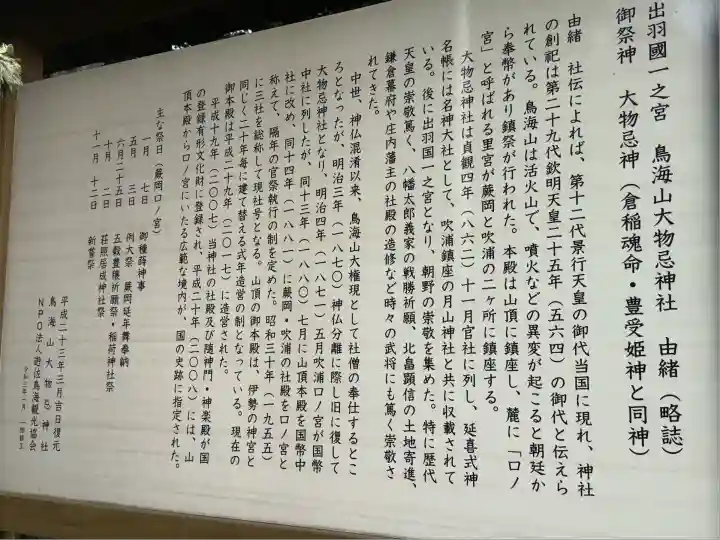 出羽國一之宮　鳥海山大物忌神社　由緒（略誌）
御祭神　大物忌神（倉稲魂命・豊受姫神と同神）
由緒　社伝によれば、第十二代景行天皇の御代当国に現れ、神社
の創祀は第二十九代欽明天皇二十五年（五六四）の御代と伝えら
れている。鳥海山は活火山で、噴火などの異変が起こると朝廷か
ら奉幣があり鎮祭が行われた。本殿は山頂に鎮座し、麓に「口ノ
宮」と呼ばれる里宮が蕨岡と吹浦の二ヶ所に鎮座する。
大物忌神社は貞観四年（八六二）十一月官社に列し、延喜式神
名帳には名神大社として、吹浦鎮座の月山神社と共に収載されて
いる。後に出羽国一之宮となり、朝野の崇敬を集めた。特に歴代
天皇の崇敬篤く、八幡太郎義家の戦勝祈願、北畠顕信の土地寄進、
鎌倉幕府や庄内藩主の社殿の造修など時々の武将にも篤く崇敬さ
れてきた。
中世、神仏混淆以来、鳥海山大権現として社僧の奉仕するとこ
ろとなったが、明治三年（一八七〇）神仏分離に際し旧に復して
大物忌神社となり、明治四年（一八七一）五月吹浦口ノ宮が国幣
中社に列したが、同十三年（一八八〇）七月に山頂本殿を国幣中
社に改め、同十四年（一八八一）に蕨岡・吹浦の社殿を口ノ宮と
称えて、隔年の官祭執行の制を定めた。昭和三十年（一九五五）
に三社を総称して現社号となる。山頂の御本殿は、伊勢の神宮と
同じく二十年毎に建て替える式年造営の制となっている。現在の
御本殿は平成二十九年（二〇一七）に造営された。
平成十九年（二〇〇七）当神社の社殿及び随神門・神楽殿が国
の登録有形文化財に登録され、平成二十年（二〇〇八）には、山
頂本殿から口ノ宮にいたる広範な境内が、国の史跡に指定された。
主な祭日（蕨岡口ノ宮）
一月　七日　御種蒔神事
五月　三日　例大祭　蕨岡延年舞奉納
六月二十五日　五穀豊穣祈願祭・稲荷神社祭
十月　二日　荘照居成神社祭
十一月　十二日　新嘗祭
平成二十三年三月吉日復元
鳥海山大物忌神社
NPO法人遊佐鳥海観光協会